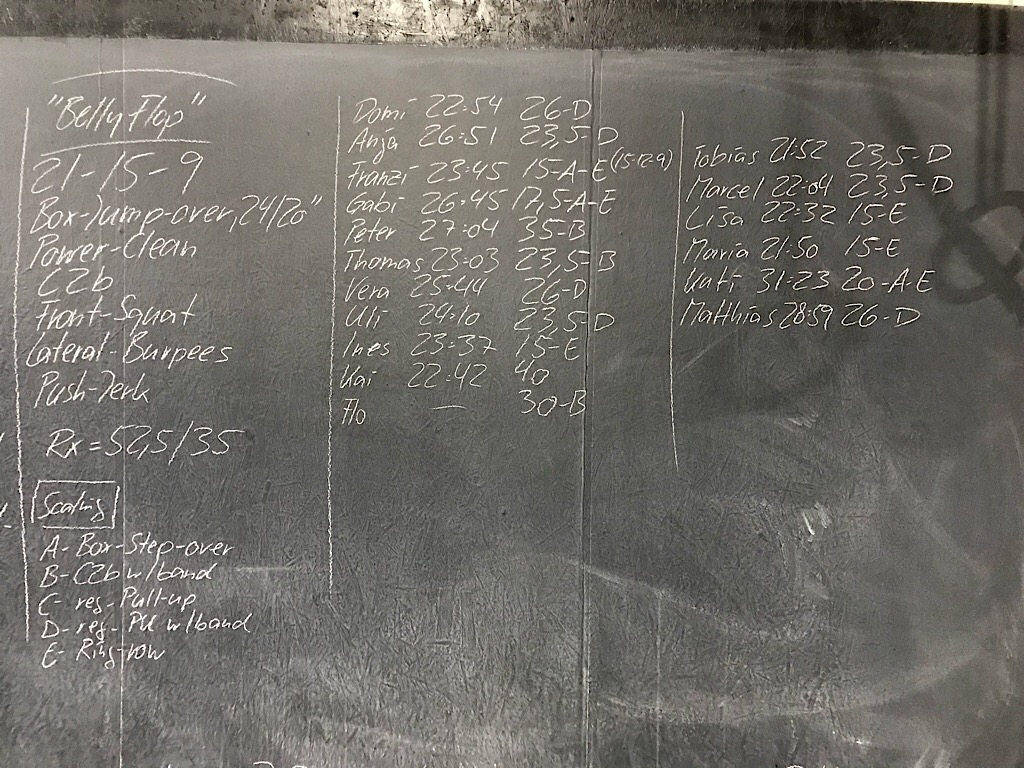 "Belly Flop"
21-15-9
Box-Jump-over, 24/20"
Power-Clean
C2b
Front-Squat
Lateral-Burpees
Push-Jerk
Rx = 52,5/35
Scaling
A- Box-Step-over
B- C2b w/band
C- reg. Pull-up
D- reg. PU w/band
E- Ring-row
Domi 22:54 26-D
Anja 26:51 23,5-D
Franzi 23:45 15-A-E (15-12-9)
Gabi 26:45 17,5-A-E
Peter 27:04 35-B
Thomas 23:03 23,5-B
Vera 25:44 26-D
Uli 24:10 23,5-D
Ines 23:37 15-E
Kai 22:42 40
Flo — 30-B
Tobias 21:52 23,5-D
Marcel 22:04 23,5-D
Lisa 22:32 15-E
Maria 21:50 15-E
Kati 31:23 20-A-E
Matthias 28:59 26-D